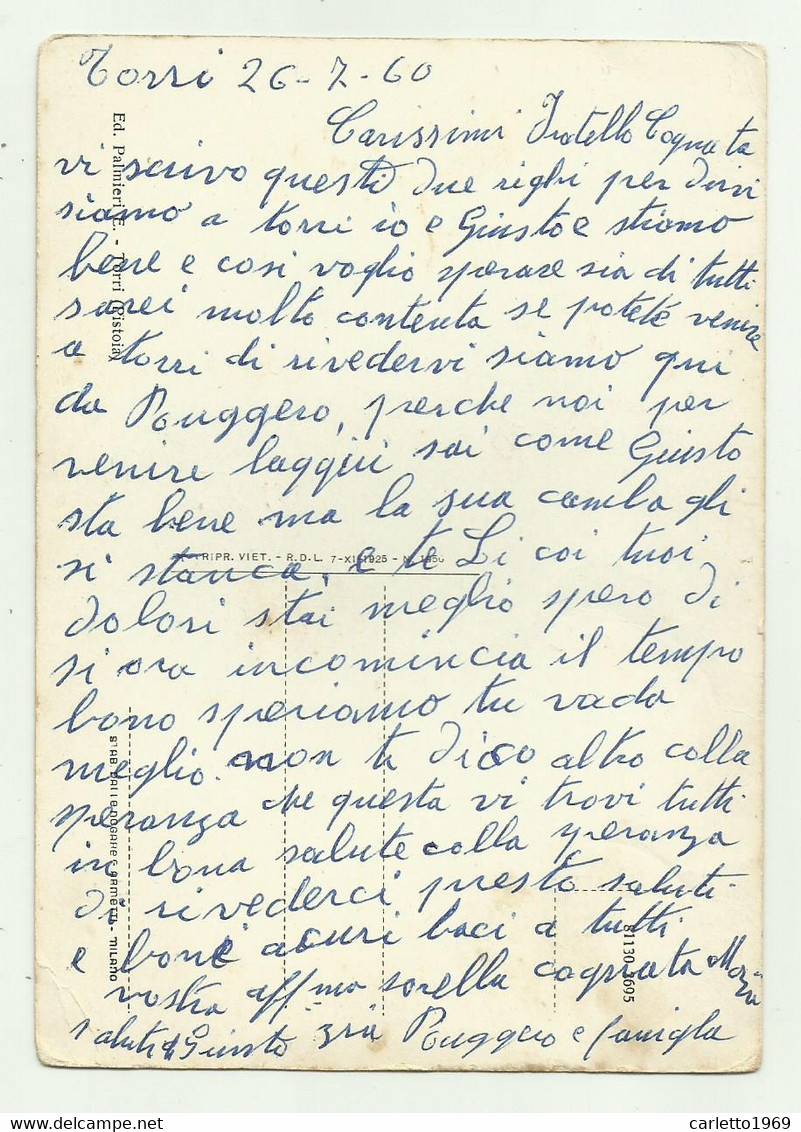 Torri 26-7-60
Carissimi Fratello Cognata
vi scrivo questi due righi per dirvi
siamo a torri io e Giusto e stiamo
bene e cosi voglio sperare sia di tutti
sarei molto contenta se potete venire
a torri di rivedervi siamo qui
da Ruggero, perche noi per
venire laggiù sai come Giusto
sta bene ma la sua camba gli
si stanca, e te Li coi tuoi
dolori stai meglio spero di
si ora incomincia il tempo
bono speriamo tu vada
meglio. non ti dico altro colla
speranza che questa vi trovi tutti
in bona salute colla speranza
di rivederci presto saluti
e boni acuri baci a tutti
vostra affma sorella cognata
saluti di Giusto zia Ruggero e famigla
Ed. Palmieri E. - Torri (Pistoia)
RIPR. VIET. - R.D.L. 7-XI-1925 - N. 1950
MILANO
81130 3695
carletto1969